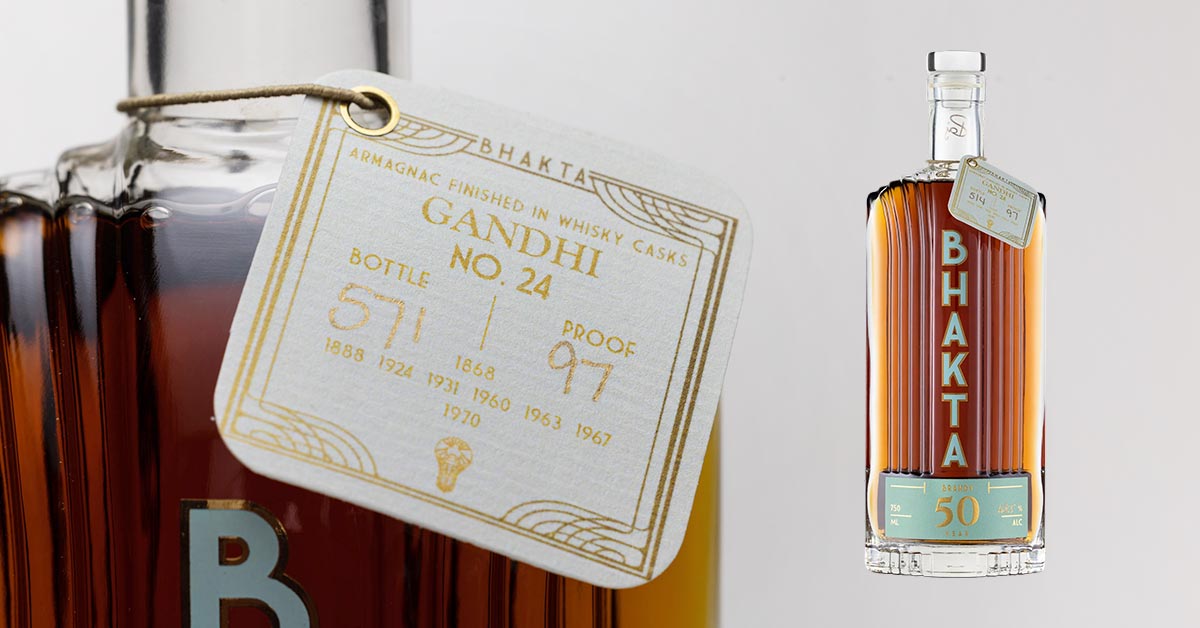 BHAKTA
ARMAGNAC FINISHED IN WHISKY CASKS
GANDHI
NO. 24
BOTTLE
571
PROOF
97
1868
1888 1924 1931 1960 1963 1967
1970
B
BHAKTA
GANDHI
NO. 24
514
97
BHAKTA
BRANDY
50
YEAR
750
ML
%
ALC